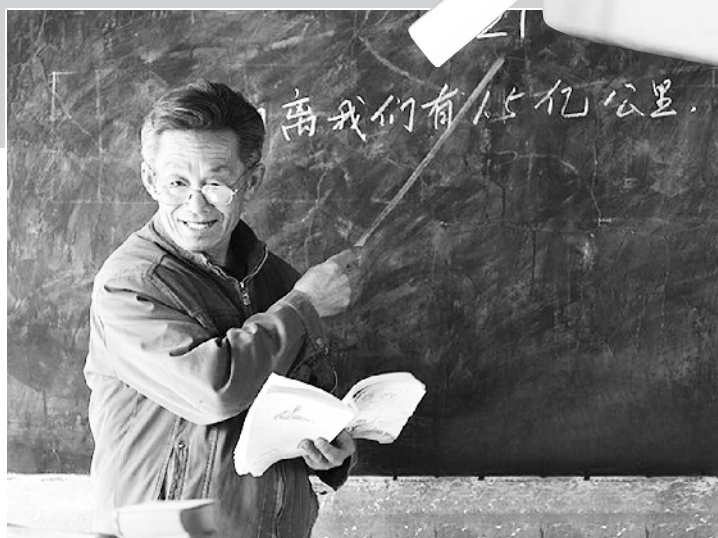 离我们有1.5亿公里.